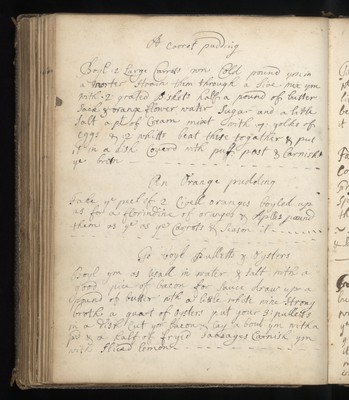 A Carrot pudding
Boyl 2 Large Carrots when Cold pound ym in
a morter strain them through a sive mix ym
with 2 grated biskets half a pound of butter
Sack & orange flower water Sugar and a little
salt a pt of Cream mixt with 7 yolks of
eggs & 2 whitts beat these together & put
it in a dish Coverd with puff past & Garnish
ye brim
An Orange pudding
Take ye peel of 2 Civell oranges boyled up
as for a florindine of oranges & Aples pound
them as ye do ye Carrots & season it
To boyl Pulletts & Oysters
Boyl ym as usall in water & salt with a
good piece of bacon for sauce draw up a
pound of butter with a little white wine strong
broth & a quart of oysters put your 3 pulletts
in a dish Cut yor bacon & lay about ym with a
pd & a half of fryed Sausages Garnish ym
with sliced Lemon